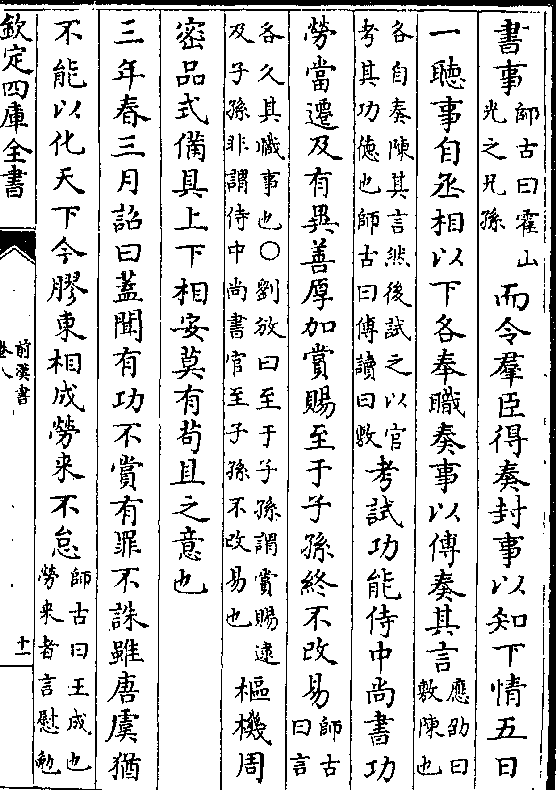 書事師古曰霍山光之兄孫而令羣臣得奏封事以知下情五日
一聽事自丞相以下各奉職奏事以傅奏其言應劭曰敷陳也
各自奏陳其言然後試之以官考其功徳也師古曰傅讀曰敷考試功能侍中尚書功
勞當遷及有異善厚加賞賜至于子孫終不改易師古曰言
各久其職事也〇劉攽曰至于子孫謂賞賜逮及子孫非謂侍中尚書官至子孫不改易也樞機周
密品式備具上下相安莫有苟且之意也
三年春三月詔曰蓋聞有功不賞有罪不誅雖唐虞猶
不能以化天下今膠東相成勞来不怠師古曰王成也勞来者言慰勉
欽定四庫全書
前漢書
卷八
十一